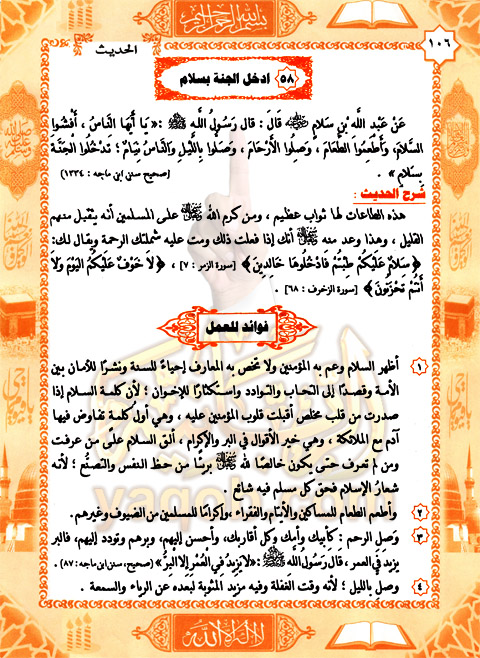 بسم الله الرحمن الرحيم
١٠٦
الحديث
٥٨ ادخل الجنة بسلام
عَنْ عَبْدِ اللَّهِ بْنِ سَلَامٍ ﷺ قَالَ : قَالَ رَسُولُ اللَّهِ ﷺ :« يَا أَيُّهَا النَّاسُ ، أَفْشُوا
السَّلَامَ، وَأَطْعِمُوا الطَّعَامَ ، وَصِلُوا الْأَرْحَامَ ، وَصَلُّوا بِاللَّيْلِ وَالنَّاسُ نِيَامٌ ؛ تَدْخُلُوا الْجَنَّةَ
بِسَلَامٍ » . [صحيح سنن ابن ماجه : ١٣٣٤]
شرح الحديث :
هذه الطاعات لها ثواب عظيم ، ومن كرم الله على المسلمين أنه يتقبل منهم
القليل ، وهذا وعد منه أنك إذا فعلت ذلك ومت عليه شملتك الرحمة ويقال لك:
﴿ سَلَامٌ عَلَيْكُمْ طِبْتُمْ فَادْخُلُوهَا خَالِدِينَ ﴾ [سورة الزمر : ٧] ، ﴿ لَا خَوْفٌ عَلَيْكُمُ الْيَوْمَ وَلَا
أَنْتُمْ تَحْزَنُونَ ﴾ [سورة الزخرف : ٦٨] .
فوائد للعمل
١ أظهر السلام وعم به المؤمنين ولا تخص به المعارف إحياءً للسنة ونشرًا للأمان بين
الأمة وقصدًا إلى التحاب والتوادد واستكثارًا للإخوان ؛ لأن كلمة السلام إذا
صدرت من قلب مخلص أقبلت قلوب المؤمنين عليه ، وهي أول كلمة تفاوض فيها
آدم مع الملائكة ، وهي خير الأقوال في البر والإكرام ، ألق السلام على من عرفت
ومن لم تعرف حتى يكون خالصًا لله بريئًا من حظ النفس والتصنُّع ؛ لأنه
شعارُ الإسلام فحق كل مسلم فيه شائع .
٢ وأطعم الطعام للمساكين والأيتام والفقراء ، وإكرامًا للمسلمين من الضيوف وغيرهم.
٣ وَصِل الرحم : كأبيك وأمك وكل أقاربك، وأحسن إليهم، وبرهم وتودد إليهم، فالبر
يزيد في العمر ، قال رَسُولُ اللَّه ﷺ :« لَا يَزِيدُ فِي الْعُمْرِ إِلَّا الْبِرُّ » [صحيح، سنن ابن ماجه: ٨٧].
٤ وصل بالليل ؛ لأنه وقت الغفلة وفيه مزيد المثوبة لبُعده عن الرياء والسمعة .
لا إله إلا الله